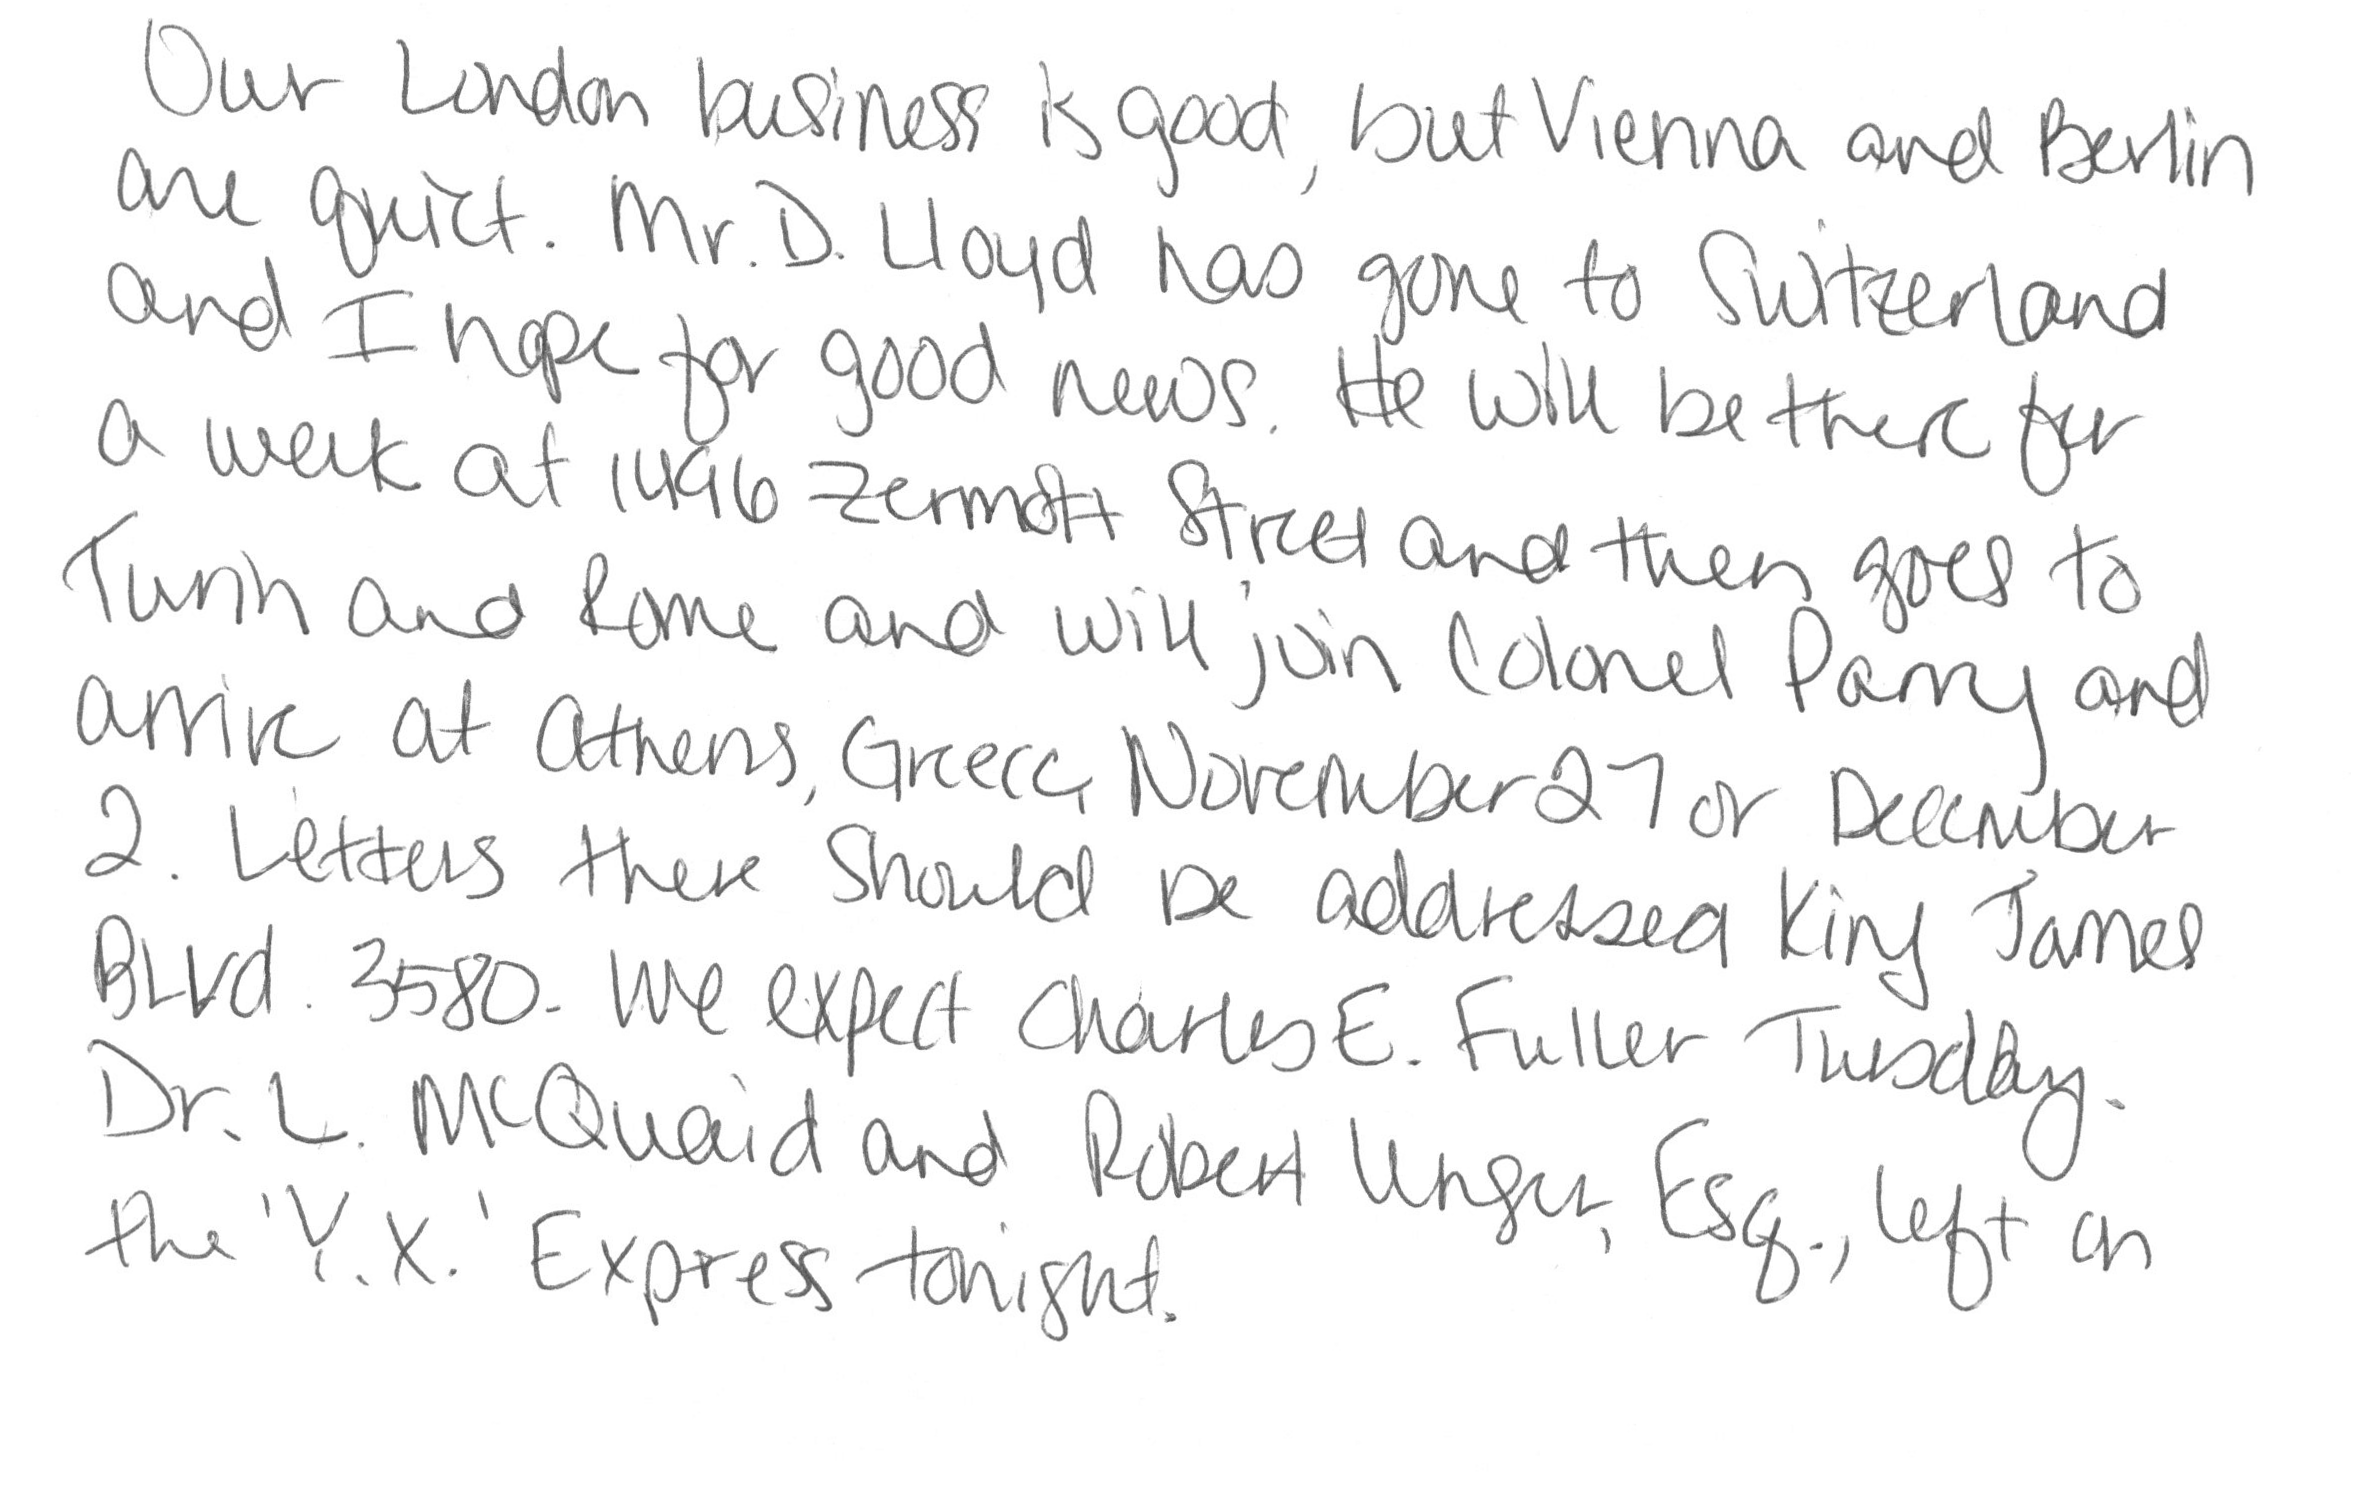 Our London business is good, but Vienna and Berlin
are quiet. Mr. D. Lloyd has gone to Switzerland
and I hope for good news. He will be there for
a week at 1496 Zermott Street and then goes to
Turin and Rome and will join Colonel Parry and
arrive at Athens, Greece, November 27 or December
2. Letters there should be addressed King James
Blvd. 3580. We expect Charles E. Fuller Tuesday.
Dr. L. McQuaid and Robert Unger, Esq., left on
the 'Y.X.' Express tonight.